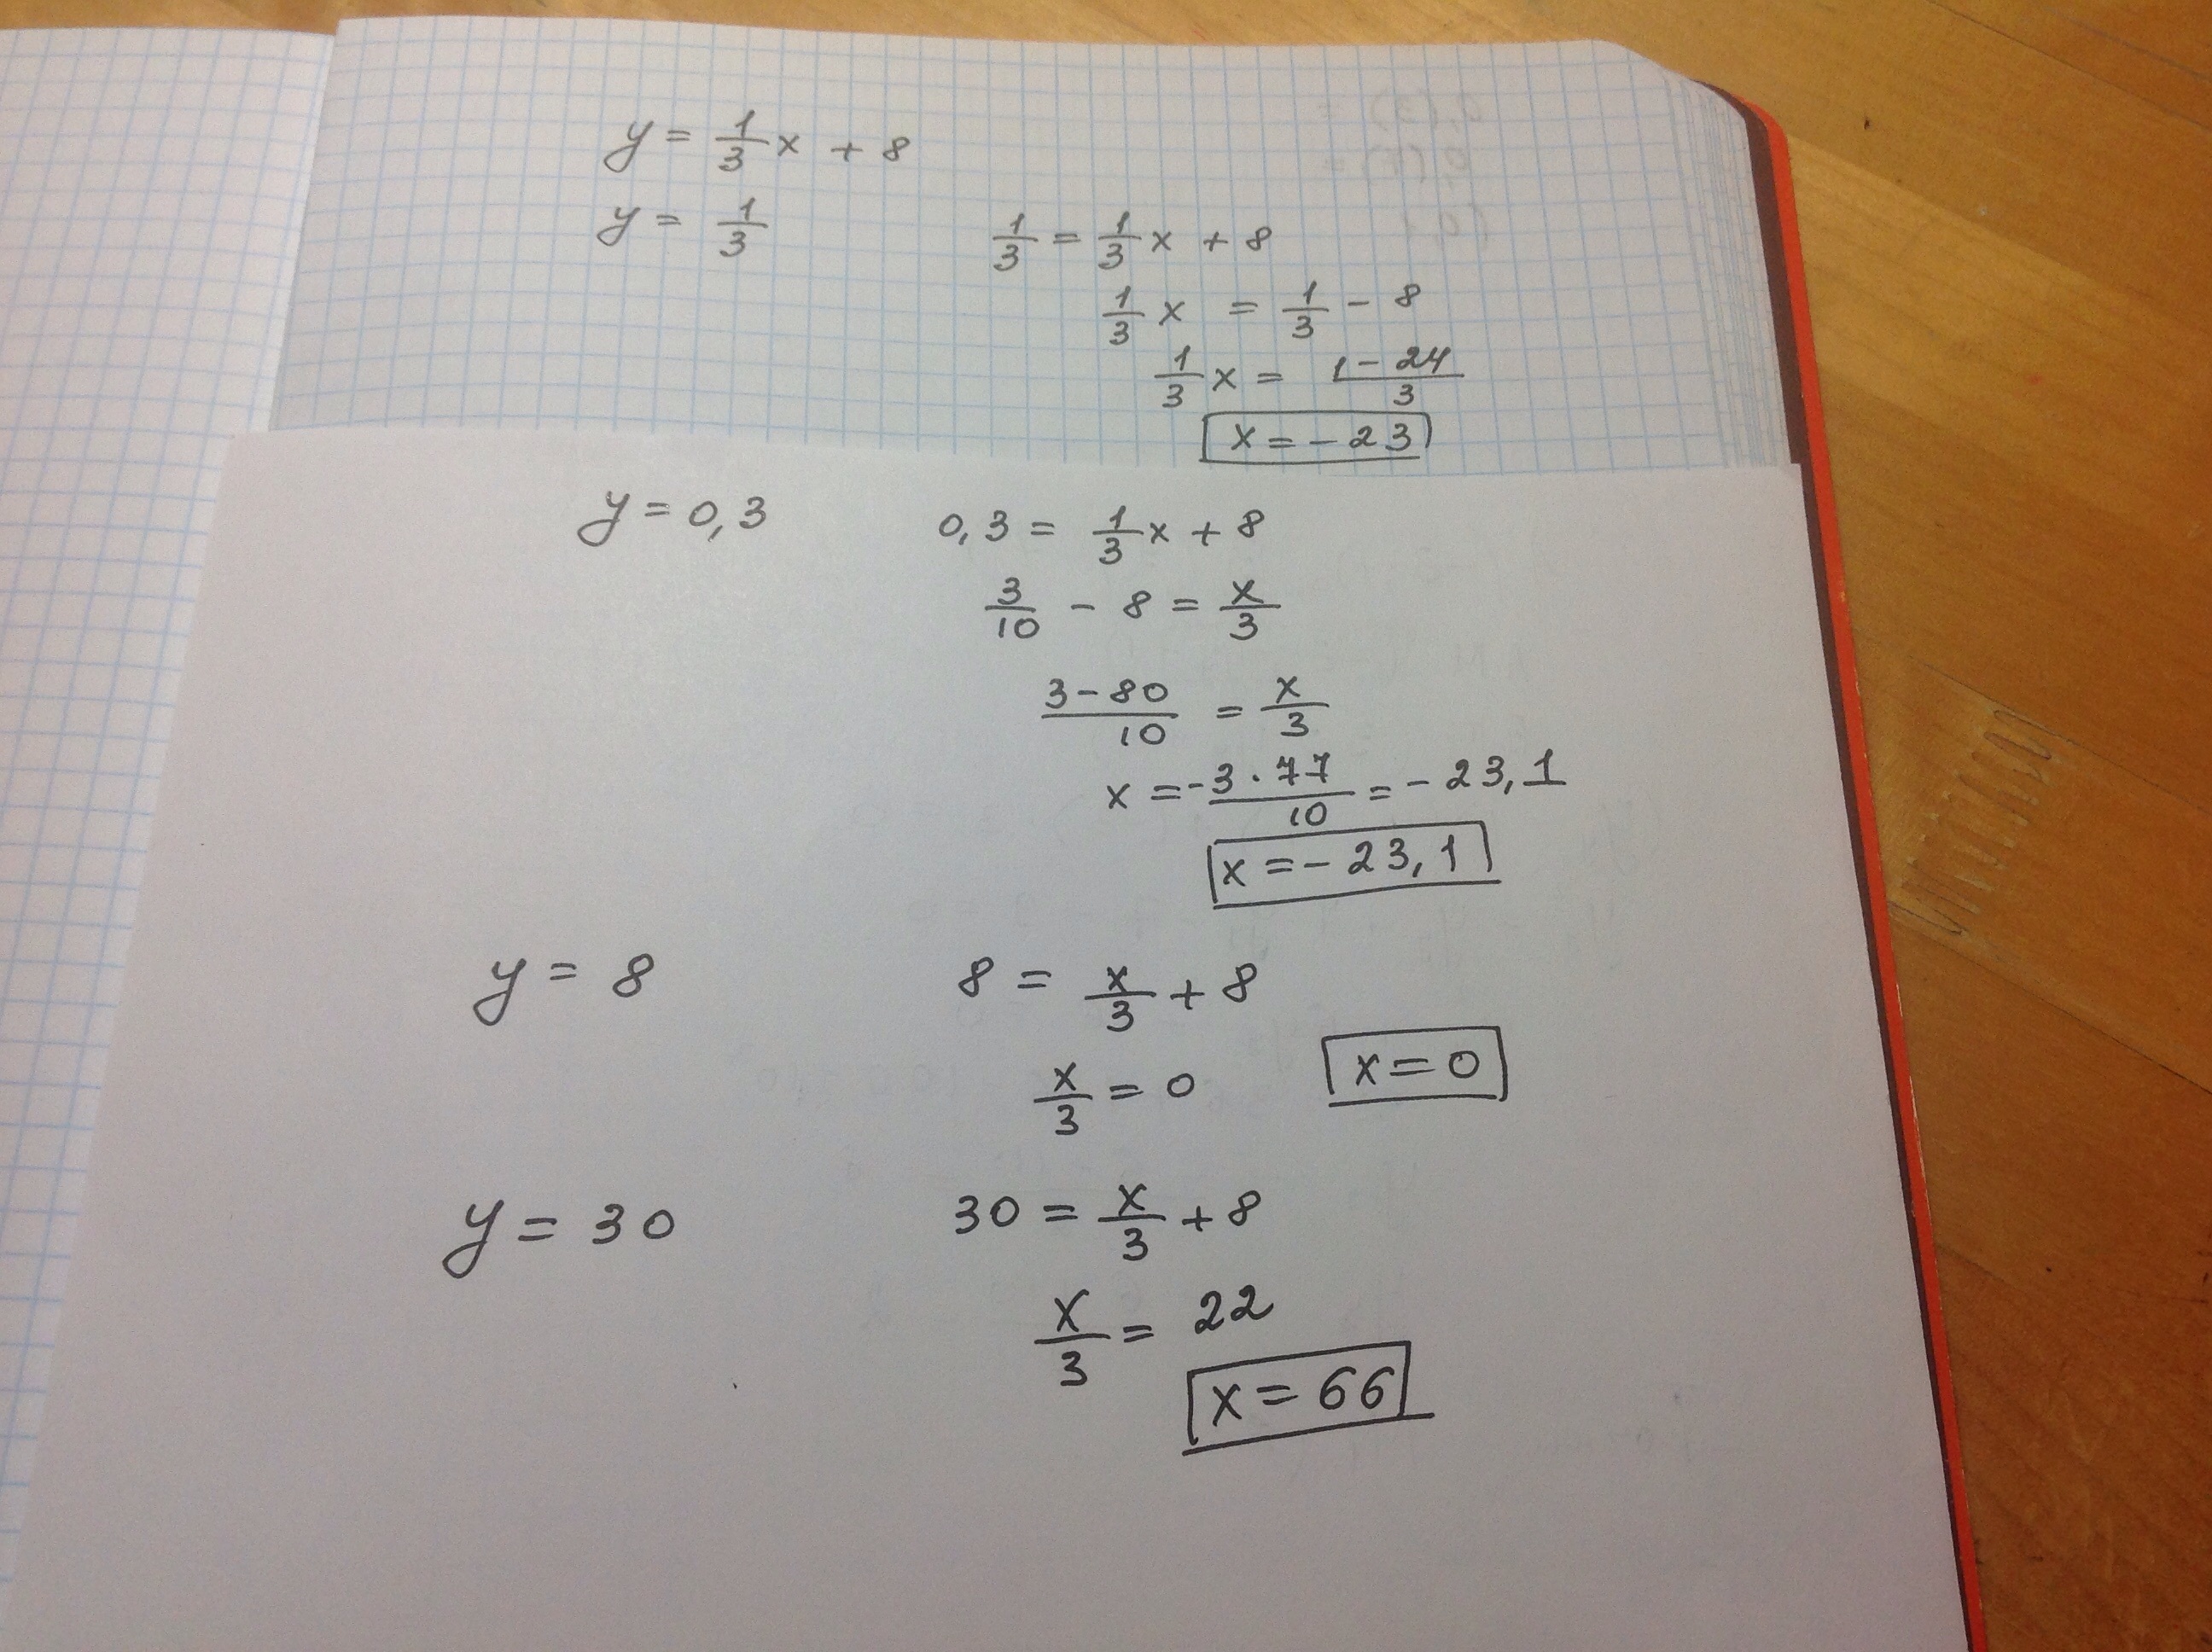 y = 1/3 x + 8
y = 1/3
1/3 = 1/3 x + 8
1/3 x = 1/3 - 8
1/3 x = (1 - 24)/3
x = - 23
y = 0,3
0,3 = 1/3 x + 8
3/10 - 8 = x/3
(3 - 80)/10 = x/3
x = - (3 · 77)/10 = - 23,1
x = - 23,1
y = 8
8 = x/3 + 8
x/3 = 0
x = 0
y = 30
30 = x/3 + 8
x/3 = 22
x = 66